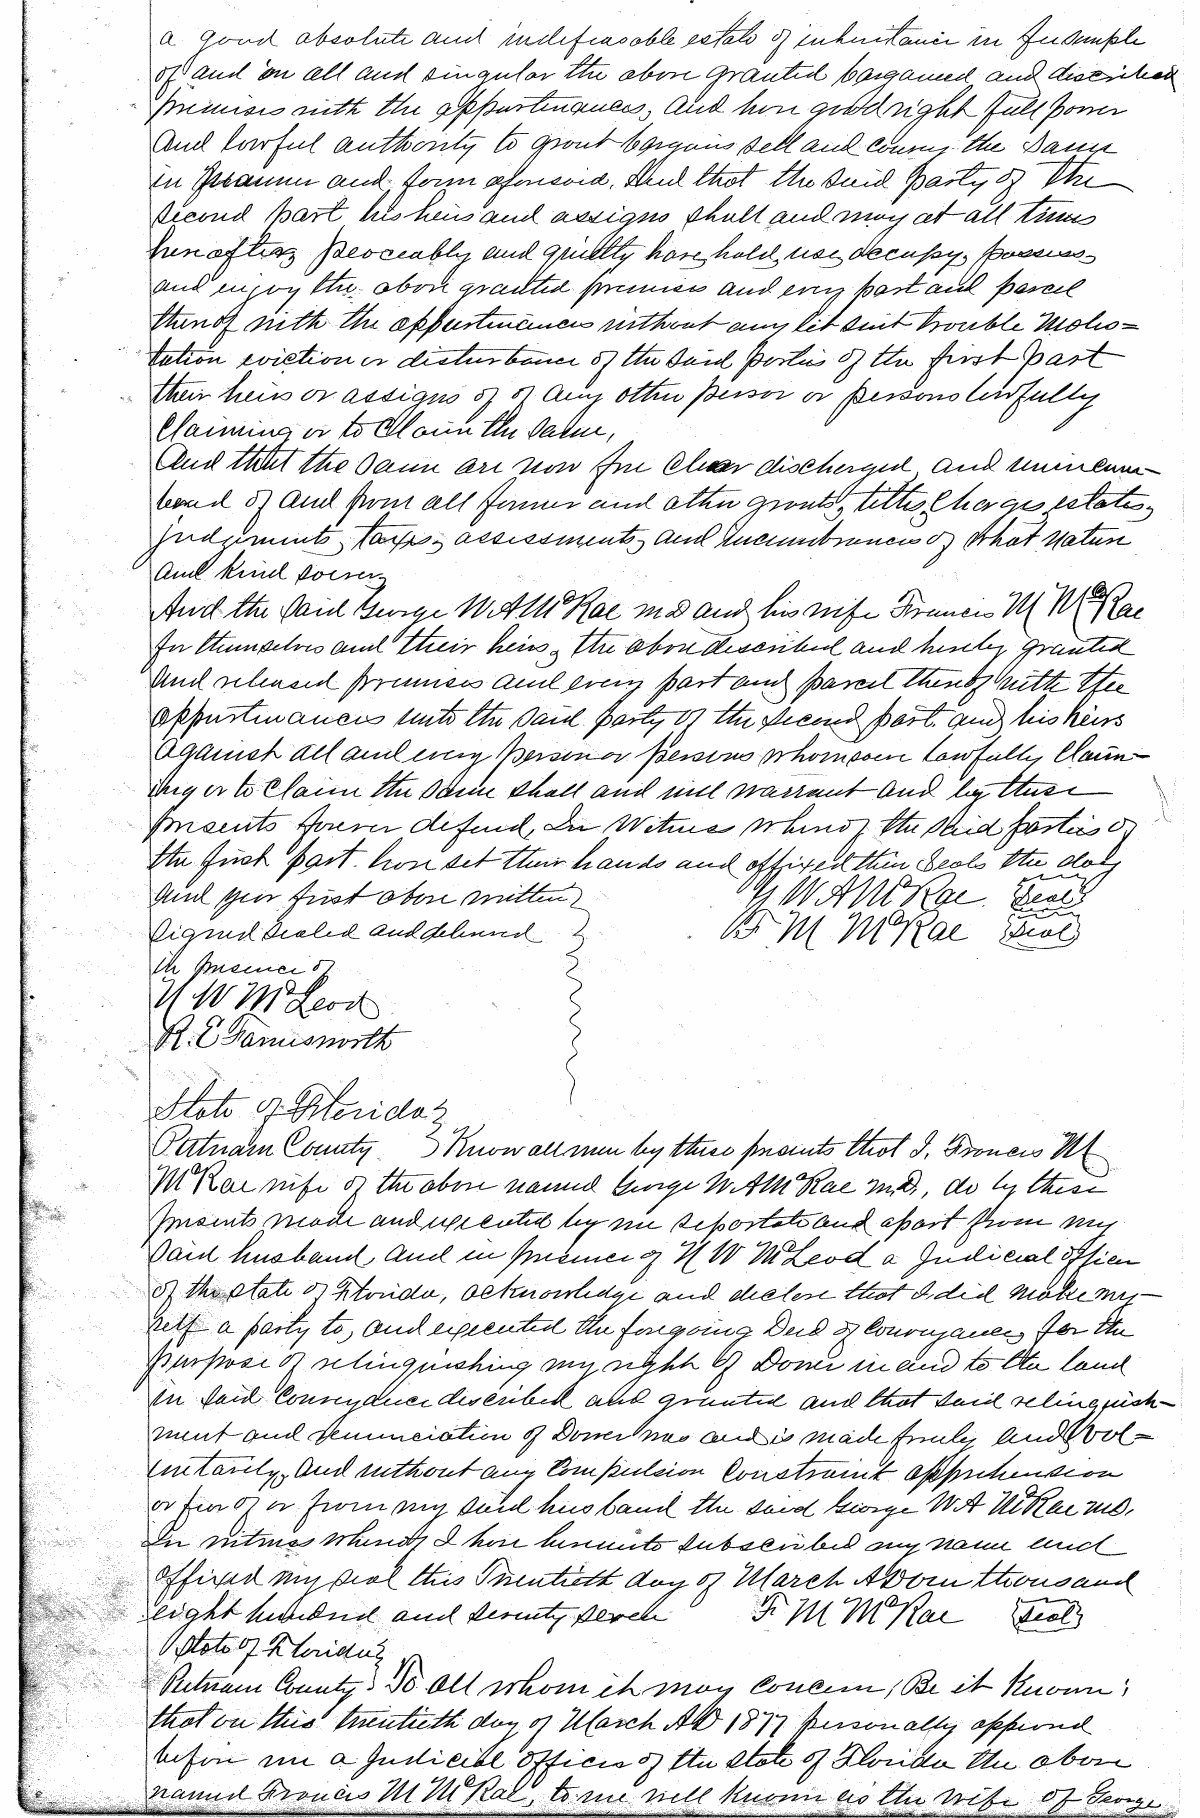 a good absolute and indefeasable estate of inheritance in fee simple
of and in all and singular the above granted bargained and described
premises with the appurtenances, and have good right full power
and lawful authority to grant bargain sell and convey the same
in manner and form aforesaid. And that the said party of the
second part, his heirs and assigns shall and may at all times
hereafter peaceably and quietly have, hold, use, occupy, possess,
and enjoy the above granted premises and every part and parcel
thereof with the appurtenances without any let suit trouble moles=
tation eviction or disturbance of the said parties of the first part
their heirs or assigns of of any other person or persons lawfully
Claiming or to Claim the same,
And that the same are now free Clear discharged, and unincum-
bered of and from all former and other grants, titles, Charges, estates,
judgements, taxes, assessments, and incumbrances of what nature
and kind soever,
And the said George W. A McRae MD and his wife Francis M McRae
for themselves and their heirs, the above described and hereby granted
and released premises and every part and parcel thereof with the
appurtenances unto the said party of the second part, and his heirs
against all and every person or persons whomsoever lawfully Claim-
ing or to Claim the same shall and will warrant and by these
presents forever defend, In Witness whereof the said parties of
the first part have set their hands and affixed their seals the day
and year first above written
G W A McRae. Seal
Signed Sealed and delivered
F M McRae Seal
in presence of
N W McLeod
R. E
State of Florida
Putnam County Know all men by these presents that I, Francis M
McRae wife of the above named George W. A McRae M.D., do by these
presents, made and executed by me separate and apart from my
said husband, and in presence of N W McLeod a Judicial officer
of the state of Florida, acknowledge and declare that I did make my-
self a party to, and executed the foregoing Deed of Conveyance, for the
purpose of relinquishing my right of Dower in and to the land
in said Conveyance described and granted and that said relinquish-
ment and renunciation of Dower was and is made freely and vol=
untarily, and without any Compulsion Constraint apprehension
or fear of or from my said husband the said George W A McRae MD.
In witness whereof I have hereunto subscribed my name and
affixed my seal this Twentieth day of March AD one thousand
eight hundred and seventy seven F. M McRae Seal
State of Florida
Putnam County To all whom it may Concern, Be it Known:
that on this twentieth day of March AD 1877 personally appeared
before me a Judicial officer of the state of Florida the above
named Francis M McRae, to me well known as the wife of George